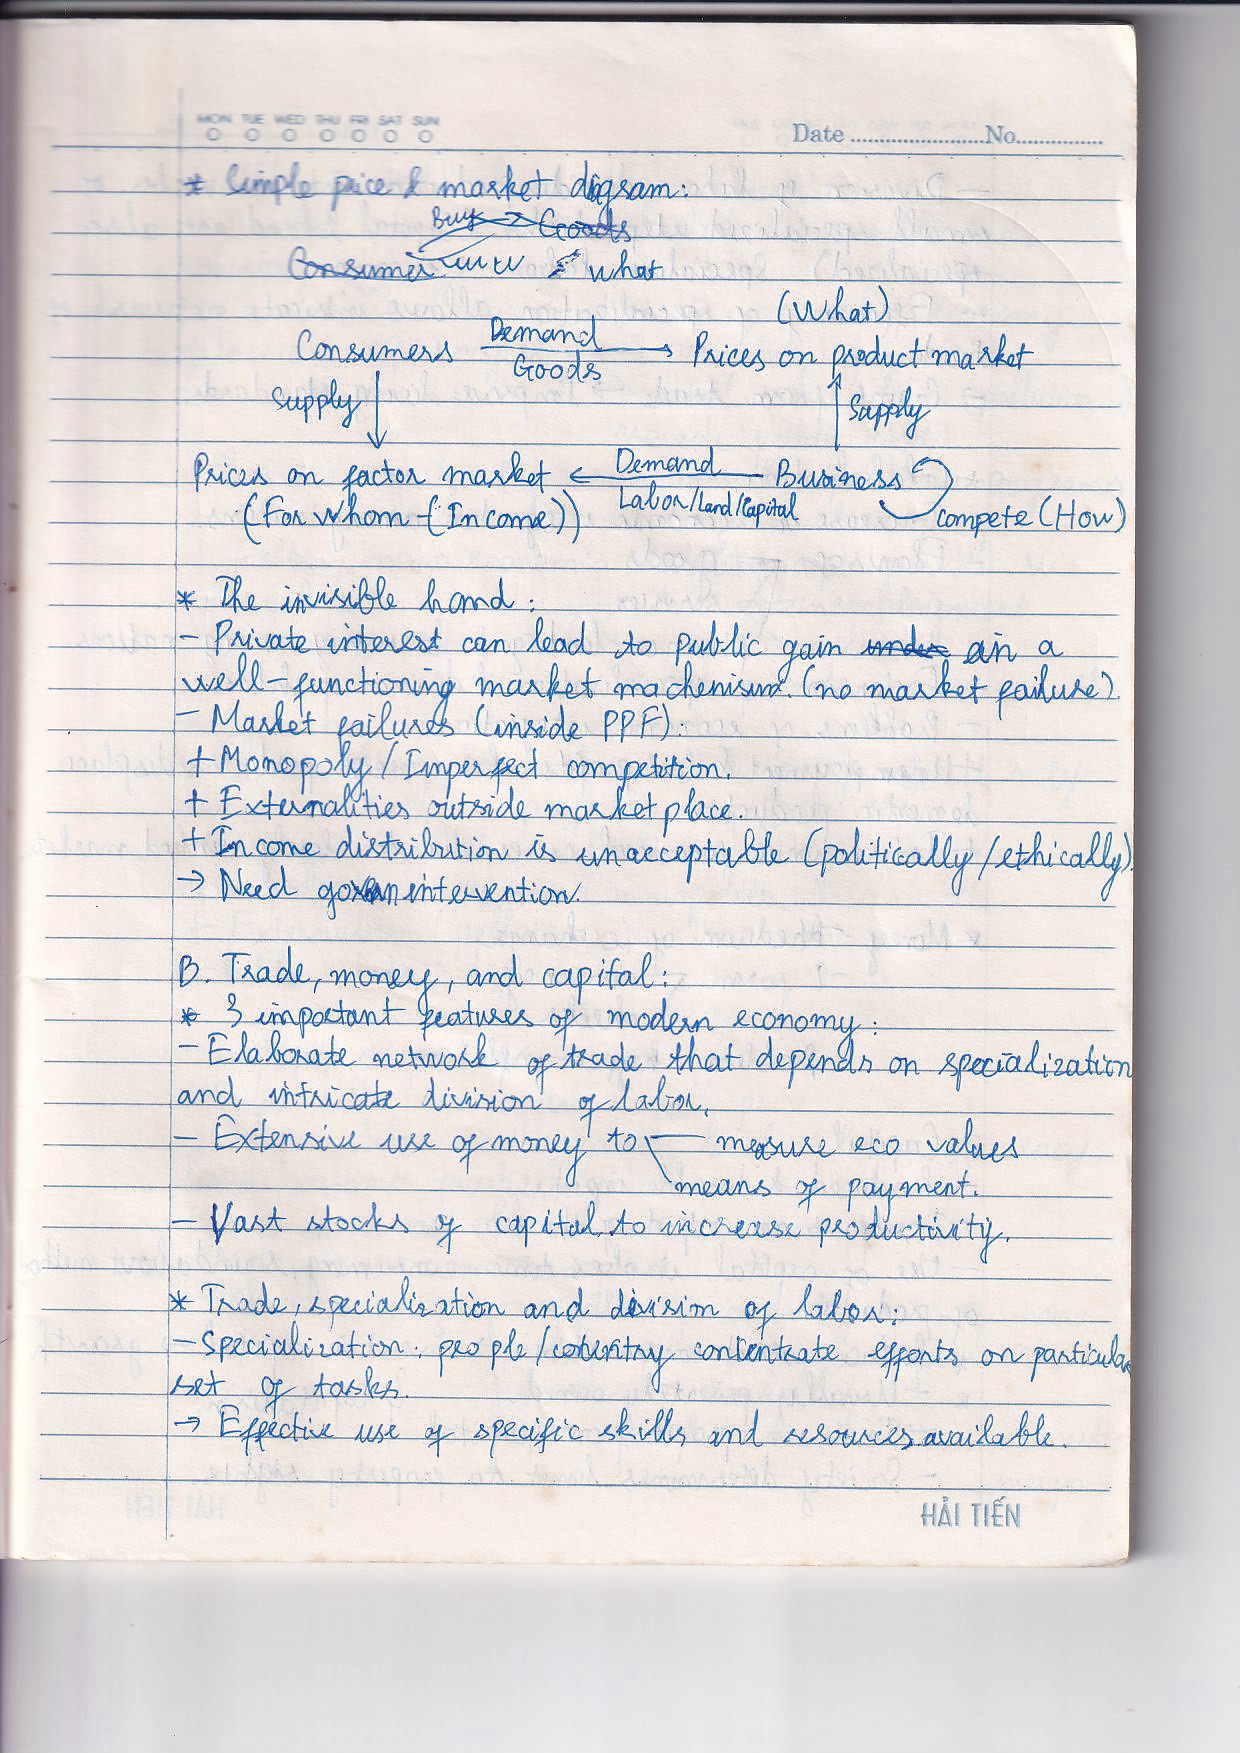 MON TUE WED THU FRI SAT SUN
Date ........................No................
* Simple price & market digram:
Buy Goods
Consumer what
(What)
Consumers Demand Prices on product market
Goods
Supply Supply
Prices on factor market Demand Business
(For whom - (Income)) Labor/Land/Capital compete (How)
* The invisible hand:
- Private interest can lead to public gain under in a
well-functioning market machenism. (no market failure).
- Market failures (inside PPF):
+ Monopoly / Imperfect competition.
+ Externalities outside market place.
+ Income distribution is unacceptable (politically/ethically).
→ Need govern intervention.
B. Trade, money, and capital:
* 3 important features of modern economy:
- Elaborate network of trade that depends on specialization
and intricate division of labor.
- Extensive use of money to measure eco values
means of payment.
- Vast stocks of capital to increase productivity.
* Trade, specialization and division of labor:
- Specialization: people/country concentrate efforts on particular
set of tasks.
→ Effective use of specific skills and resources available.
HẢI TIẾN